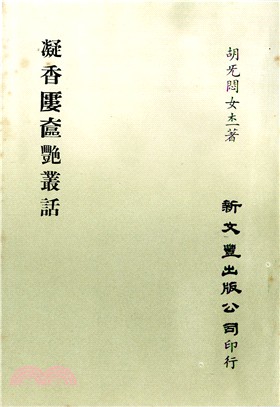 胡旡悶女士著
新文豐出版公司印行
凝香廔奩艷叢話